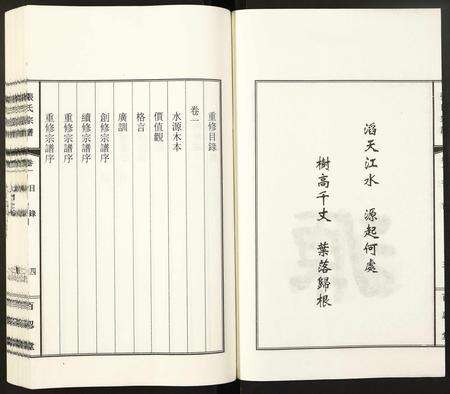 滔天江水　源起何處
樹高千丈　葉落歸根
重修目錄
卷一
水源木本
價值觀
格言
廣訓
創修宗譜序
續修宗譜序
重修宗譜序
重修宗譜序
張氏宗譜
卷一
目錄
四
百忍堂